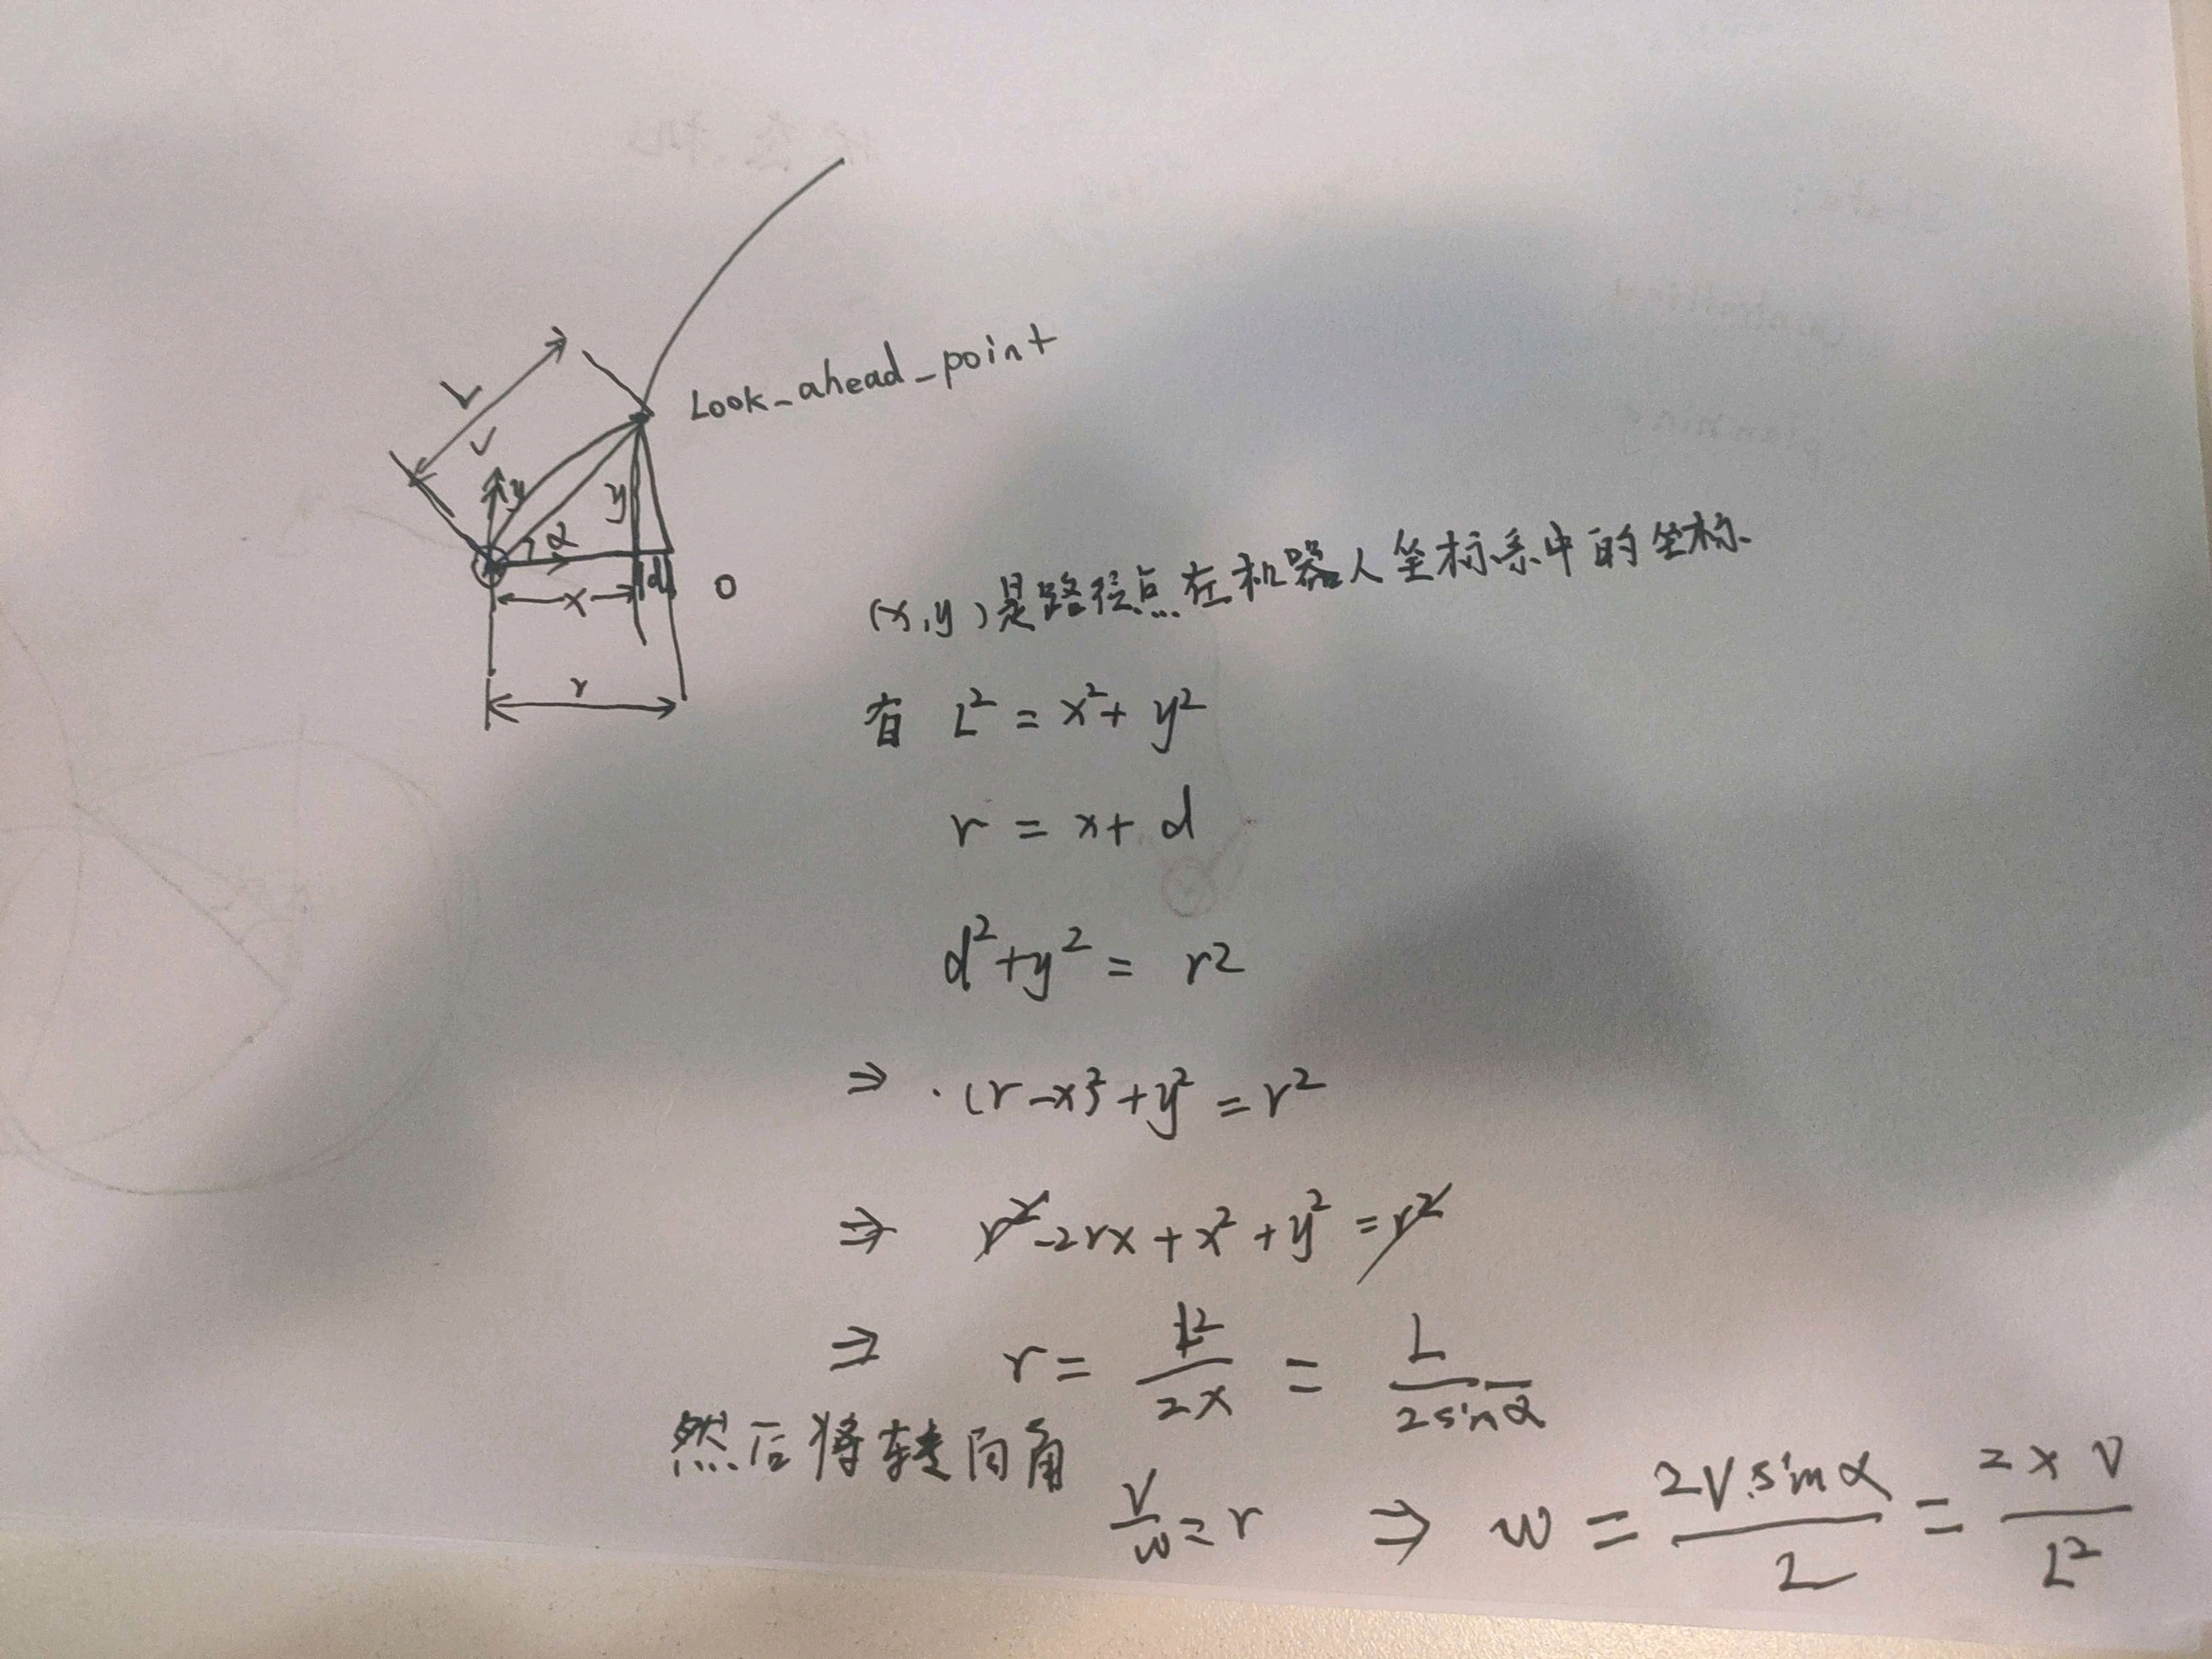 Look_ahead_point
L
V
y
y
α
x
d
O
r
(x,y)是路径点在机器人坐标系中的坐标
有 L² = x² + y²
r = x + d
d² + y² = r²
⇒ (r - x)² + y² = r²
⇒ r² - 2rx + x² + y² = r²
⇒ r = L²/2x = L/2sinα
然后将转向角
V/w = r ⇒ w = 2V sinα/L = 2xV/L²